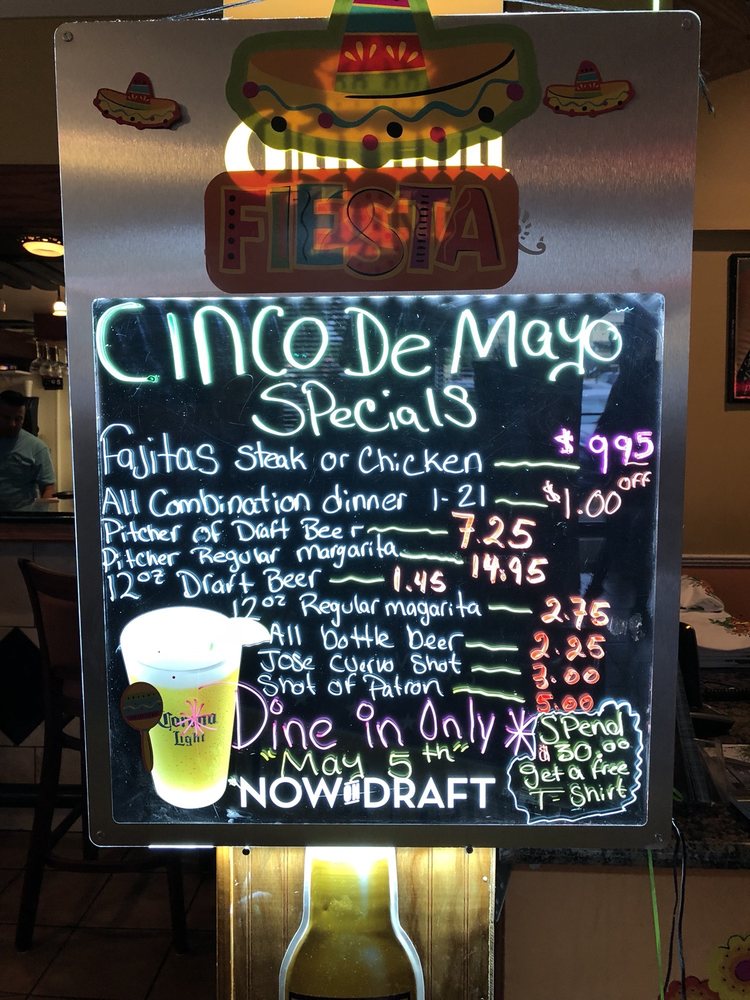 FIESTA
CINCO De Mayo
SPecials
Fajitas Steak or Chicken $9.95
All Combination dinner 1-21 $1.00 OFF
Pitcher of Draft Beer 7.25
Pitcher Regular margarita 14.95
12oz Draft Beer 1.45
12oz Regular magarita 2.75
All bottle beer 2.25
Jose Cuervo Shot 3.00
Shot of Patron 5.00
Dine in Only *
"May 5th"
NOW ON DRAFT
SPend
$30.00
get a free
T-Shirt
Corona
Light